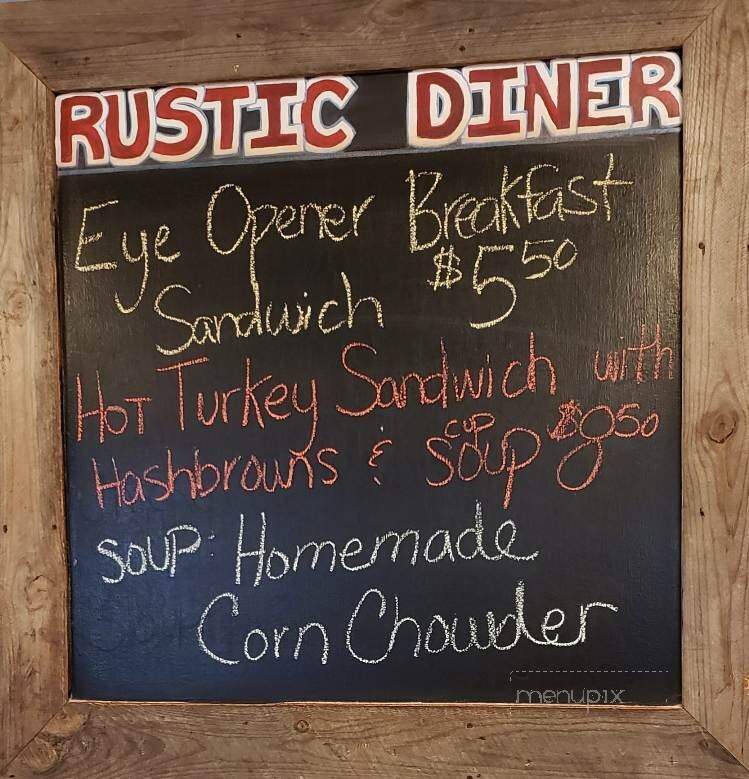 RUSTIC DINER
Eye Opener Breakfast
Sandwich $5.50
Hot Turkey Sandwich with
Hashbrowns & cup soup
SOUP: Homemade
Corn Chowder
menupix